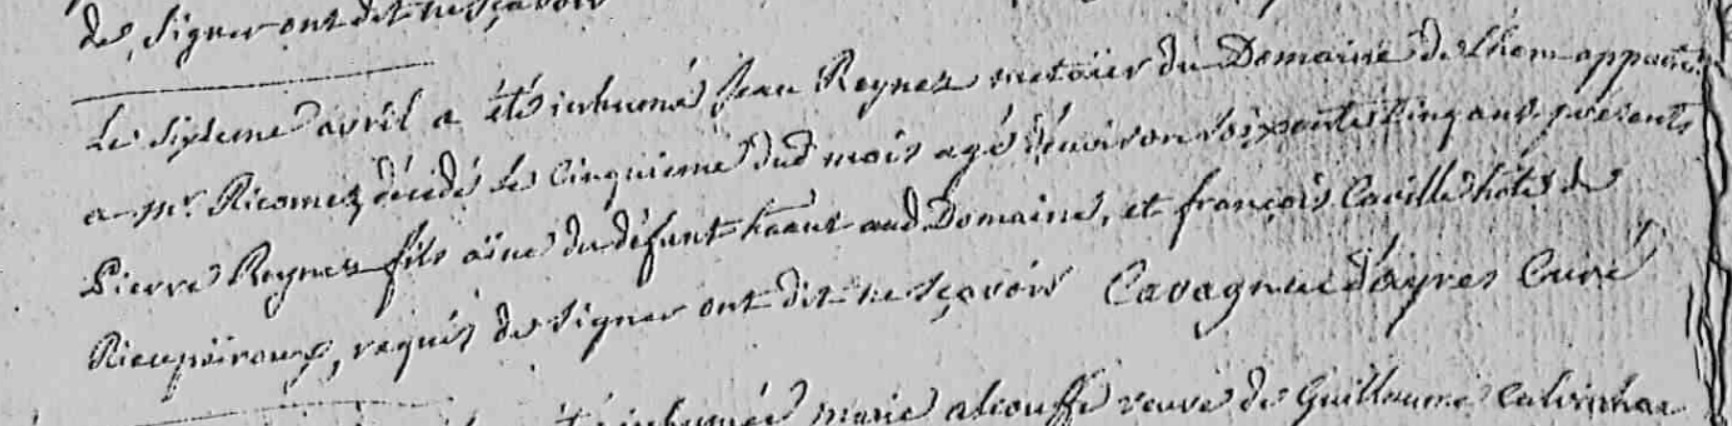 de signer ont dit ne sçavoir
Le sixieme avril a été inhumé Jean Reynes metaier du Domaine de Lhom apparte
a mr. Ricomez décédé le cinquieme dud mois agé d'environ soixante cinq ans. présents
Pierre Reynes fils aîné du défunt haãnt aud Domaine, et françois Caville hôte de
Rieupeiroux, requis de signer ont dit ne sçavoir Cavagnac d'ayres Curé
été inhumée marie aliouffe veuve de Guillaume Calvinhac